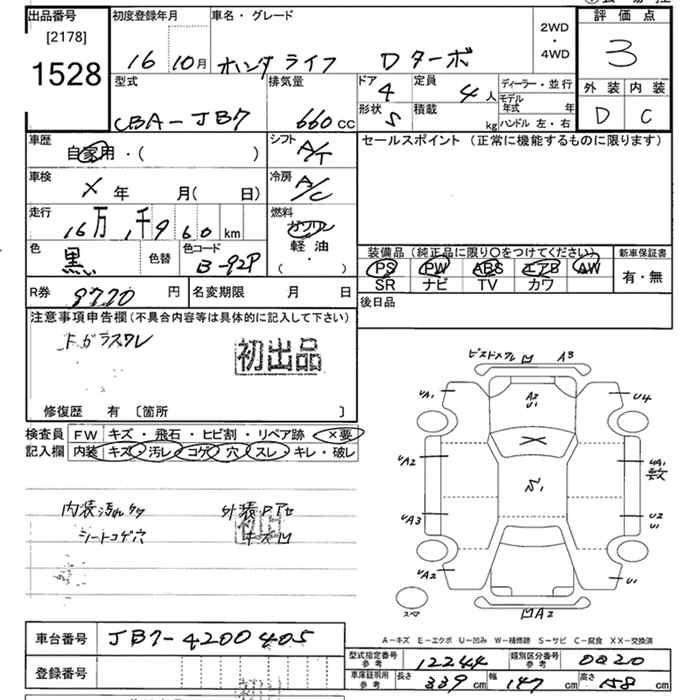 出品番号
[2178]
1528
初度登録年月
16 10月
車名・グレード
ホンダ ライフ Dターボ
2WD
・
4WD
評価点
3
外装 内装
D C
型式
CBA-JB7
排気量
660 cc
ドア
4
定員
4人
形状
5
積載
kg
ディーラー・並行
モデル
年式 年
ハンドル 左・右
車歴
自家用・( )
シフト
A/T
セールスポイント (正常に機能するものに限ります)
車検
× 年 月( 日)
冷房
A/C
走行
16万 1千960 km
燃料
ガソリン
軽油
( ・ )
色
黒
色替
色コード
B-92P
装備品 (純正品に限り○をつけてください)
PS PW ABS エアB AW
SR ナビ TV カワ
新車保証書
有・無
R券 9770 円
名変期限 月 日
後日品
注意事項申告欄 (不具合内容等は具体的に記入して下さい)
Fガラスワレ
初出品
修復歴 有 〔箇所 〕
検査員
記入欄
FW キズ・飛石・ヒビ割・リペア跡 ×要
内装 キズ・汚レ・コゲ・穴・スレ・キレ・破レ
内装汚れ
シートコゲ穴
外装
キズ凹
凹 A3
UA1
A2
U1
U4
UA2
UA1
S1
UA3
U2
U1
UA2
U1
凹A2
A-キズ E-エクボ U-凹み W-補修跡 S-サビ C-腐食 XX-交換済
車台番号
JB7-4200405
登録番号
型式指定番号
参考
12244
類別区分番号
参考
0020
車庫証明用
参考
長さ 339 cm 幅 147 cm 高さ 158 cm